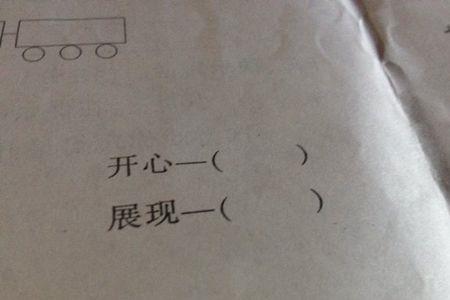 开心—( )
展现—( )